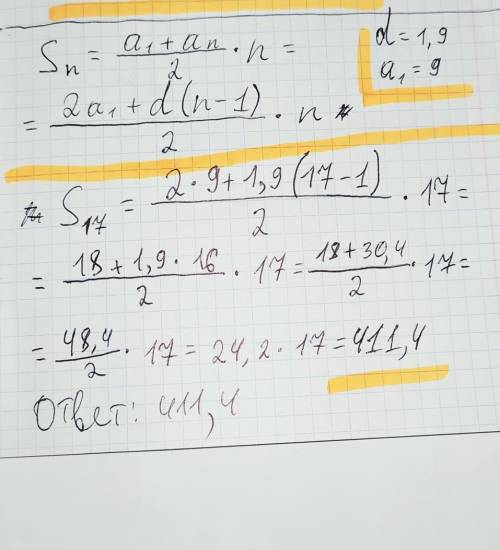 Sₙ = (a₁ + aₙ)/2 · n =
d = 1,9
a₁ = 9
= (2a₁ + d(n-1))/2 · n
S₁₇ = (2·9 + 1,9(17-1))/2 · 17 =
= (18 + 1,9·16)/2 · 17 = (18+30,4)/2 · 17 =
= 48,4/2 · 17 = 24,2 · 17 = 411,4
Ответ: 411,4